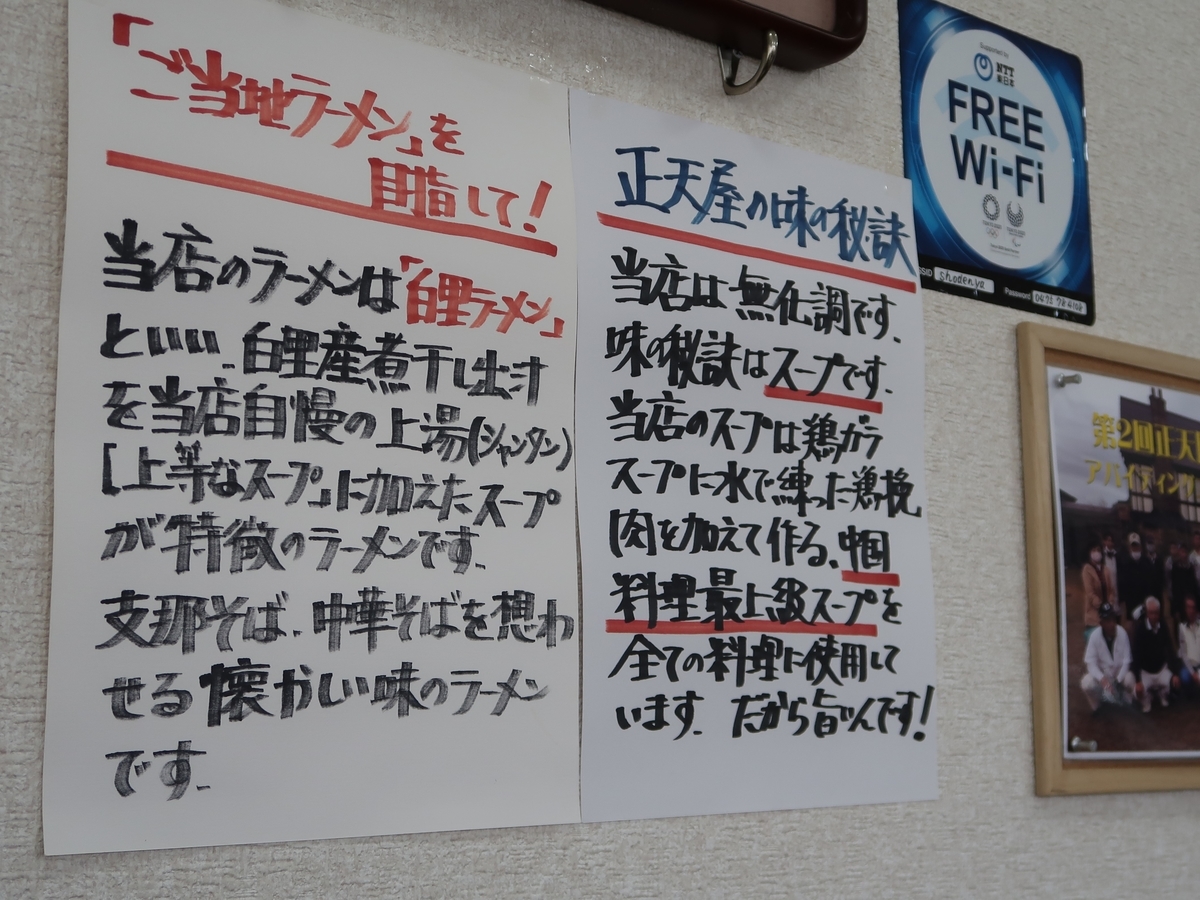 「ご当地ラーメン」を
目指して!
当店のラーメンは「白里ラーメン」
といい、白里産煮干し出汁
を当店自慢の上湯(シャンタン)
「上等なスープ」に加えたスープ
が特徴のラーメンです。
支那そば、中華そばを想わ
せる懐かしい味のラーメン
です。
正天屋の味の秘訣
当店は無化調です。
味の秘訣はスープです。
当店のスープは鶏ガラ
スープに水で練った鶏挽
肉を加えて作る、中国
料理最上級スープを
全ての料理に使用して
います。だから旨いんです!
Supported by
NTT
東日本
FREE
Wi-Fi
SSID shodenya Password
第2回正天
アハイティング